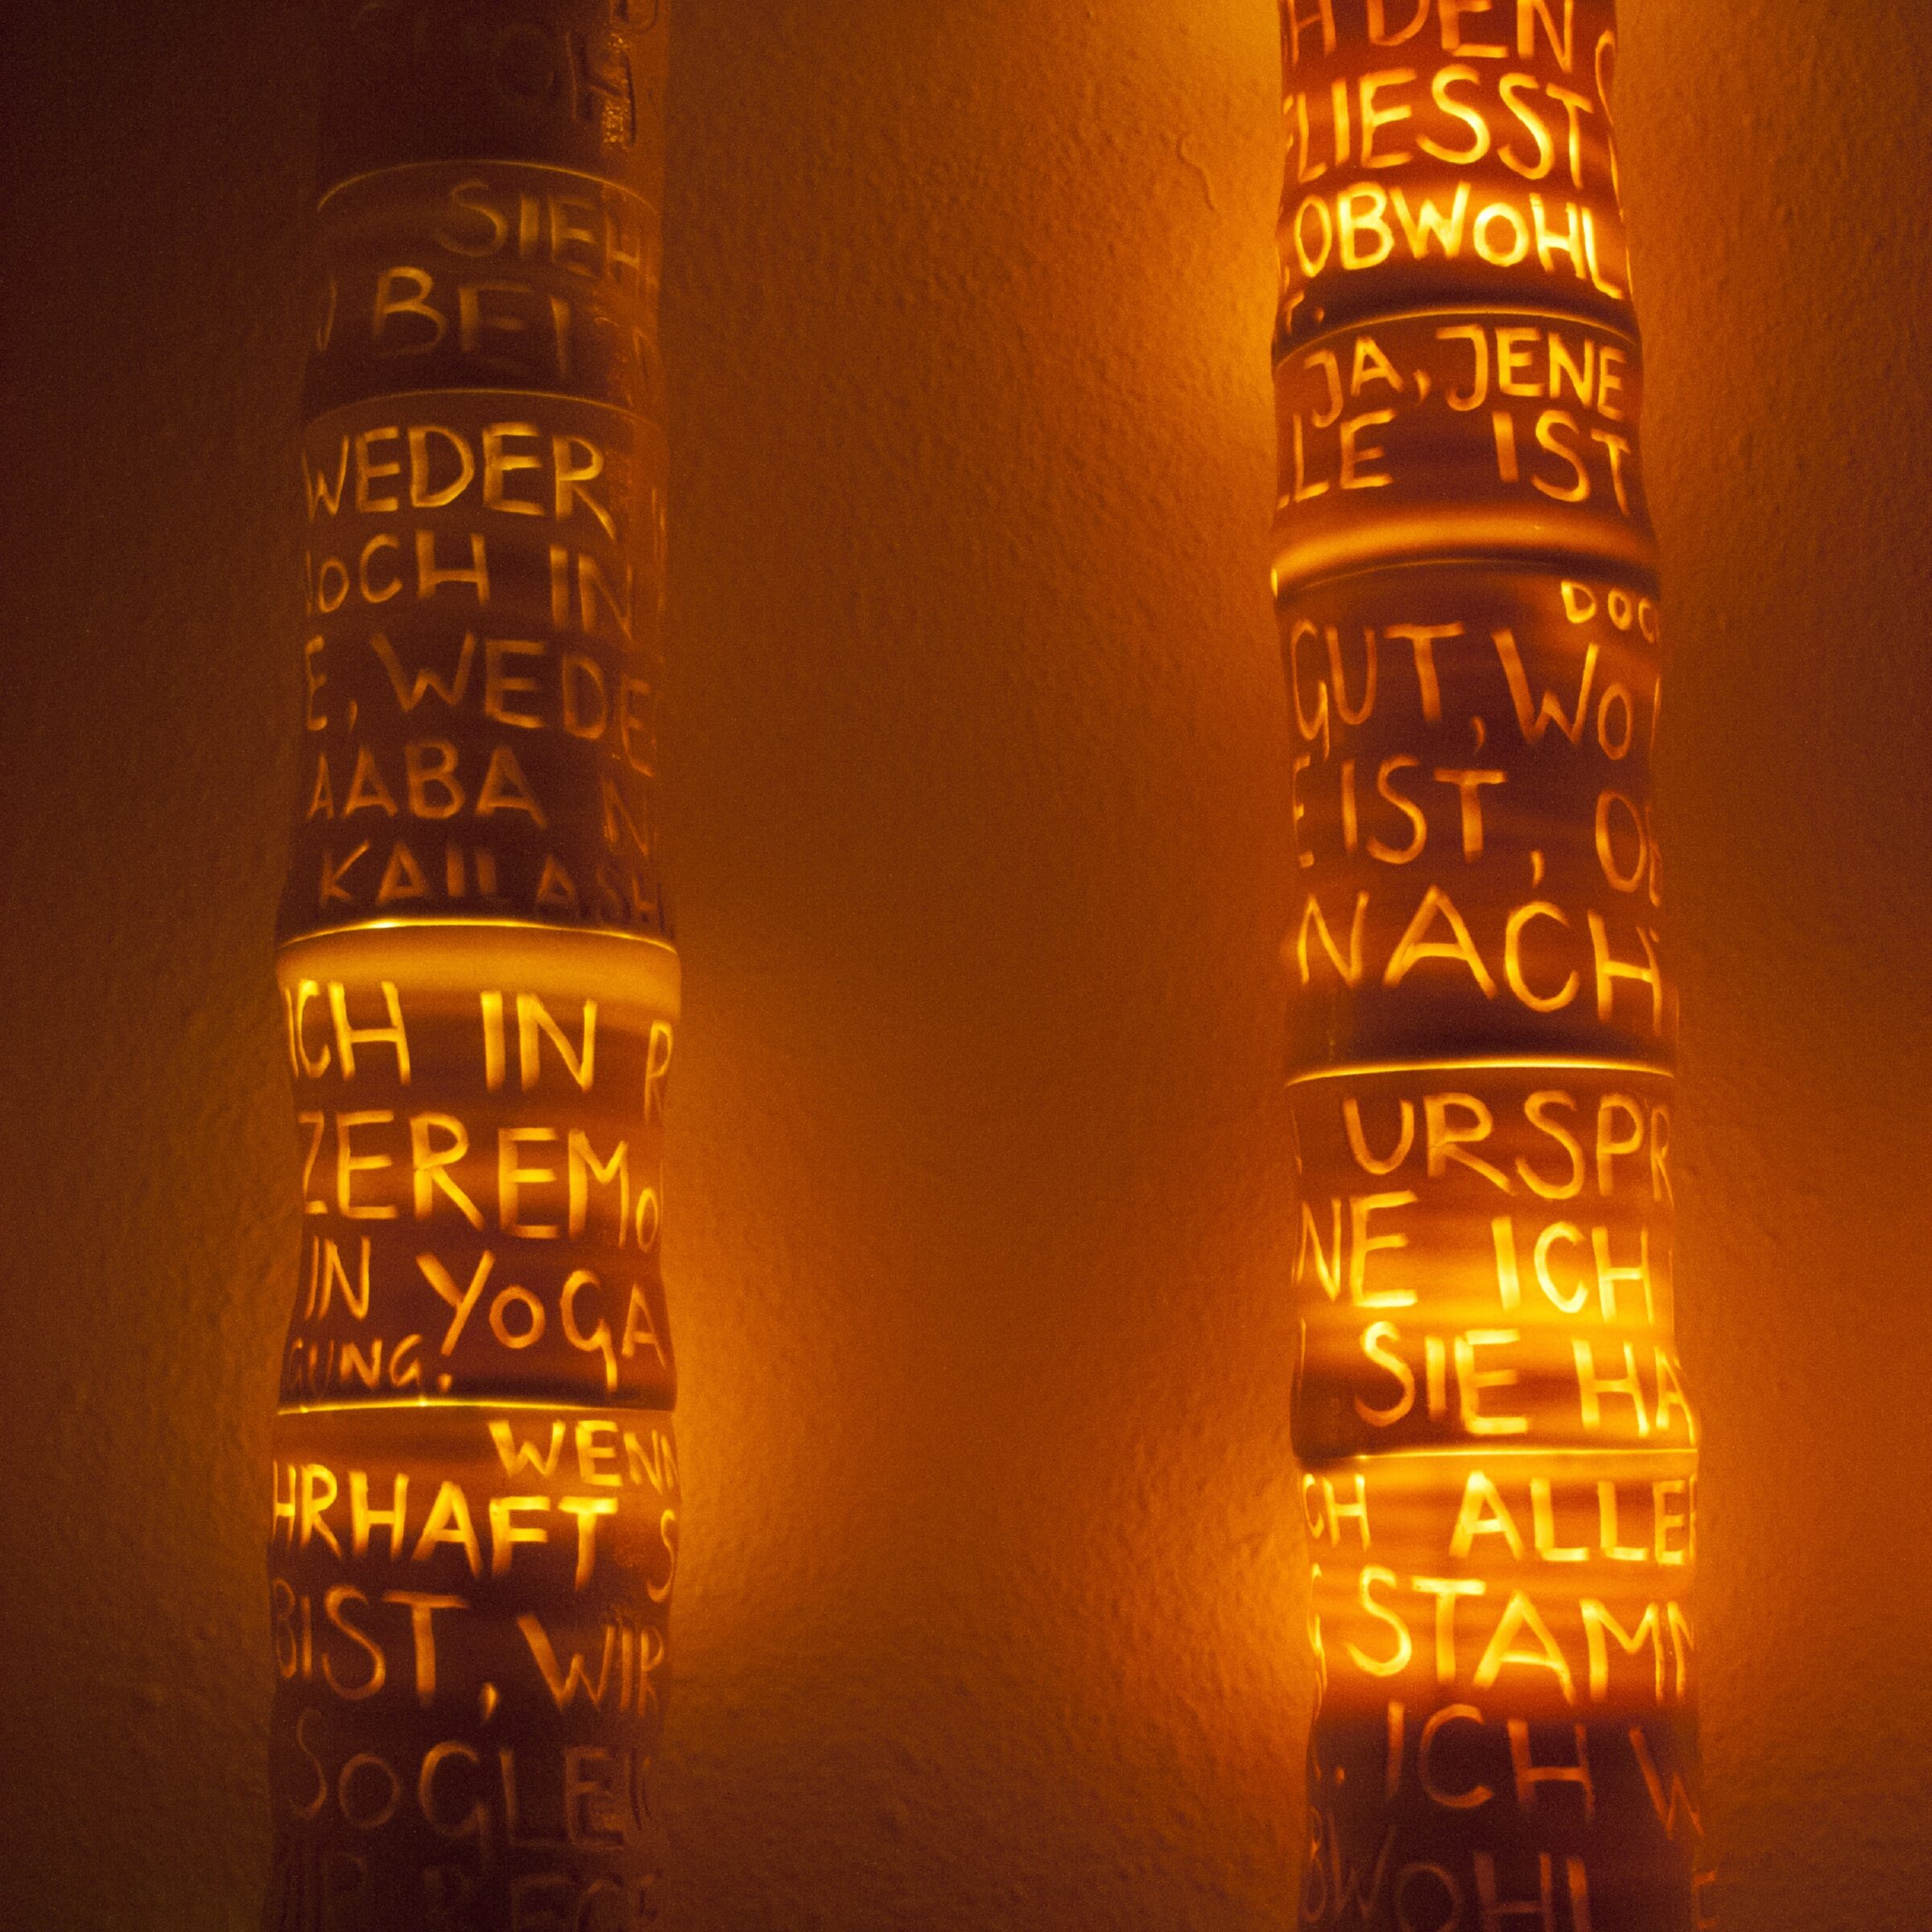 SIEH
BEI
WEDER
OCH IN
E, WEDE
AABA N
KAILASH
ICH IN R
ZEREMO
IN YOGA
GUNG.
WENN
HRHAFT S
BIST, WIR
SOGLEI
H DEN
LIESST
OBWOHL
JA, JENE
LLE IST
DOC
GUT, WO
E IST, OB
NACH
URSPR
NE ICH
SIE HA
CH ALLE
STAMM
ICH W
BWOHL